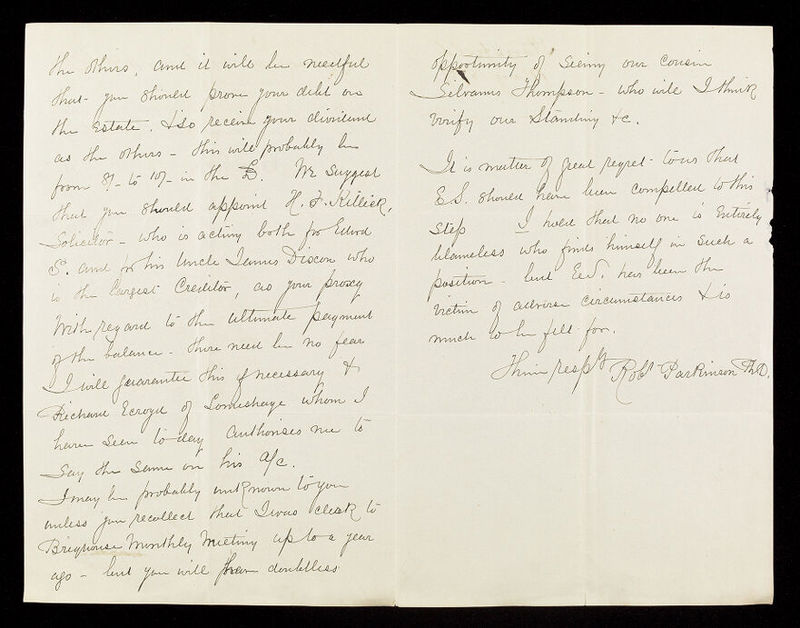 the others, and it will be needful
that you should prove your debt on
the Estate. & so receive your dividend
as the others – this will probably be
from 8/- to 10/- in the £. We suggest
that you should appoint H. F. Killick,
Solicitor – who is acting both for Edwd
S. and for his Uncle James Dixon who
is the largest Creditor, as your proxy
With regard to the ultimate payment
of the balance – there need be no fear
I will guarantee this if necessary &
Richard Ecroyd of Lomeshaye whom I
have seen to-day authorises me to
say the same on his a/c.
I may be probably unknown to you
unless you recollect that I was clerk to
Brighouse Monthly Meeting up to a year
ago – but you will have doubtless
opportunity of seeing our cousin
Silvanus Thompson – who will I think
verify our Standing &c.
It is matter of great regret to us that
E.S. should have been compelled to this
step I hold that no one is Entirely
blameless who finds himself in such a
position – but Ed. has been the
victim of adverse circumstances & is
much to be felt for.
Thine resply Robt Parkinson PhD.